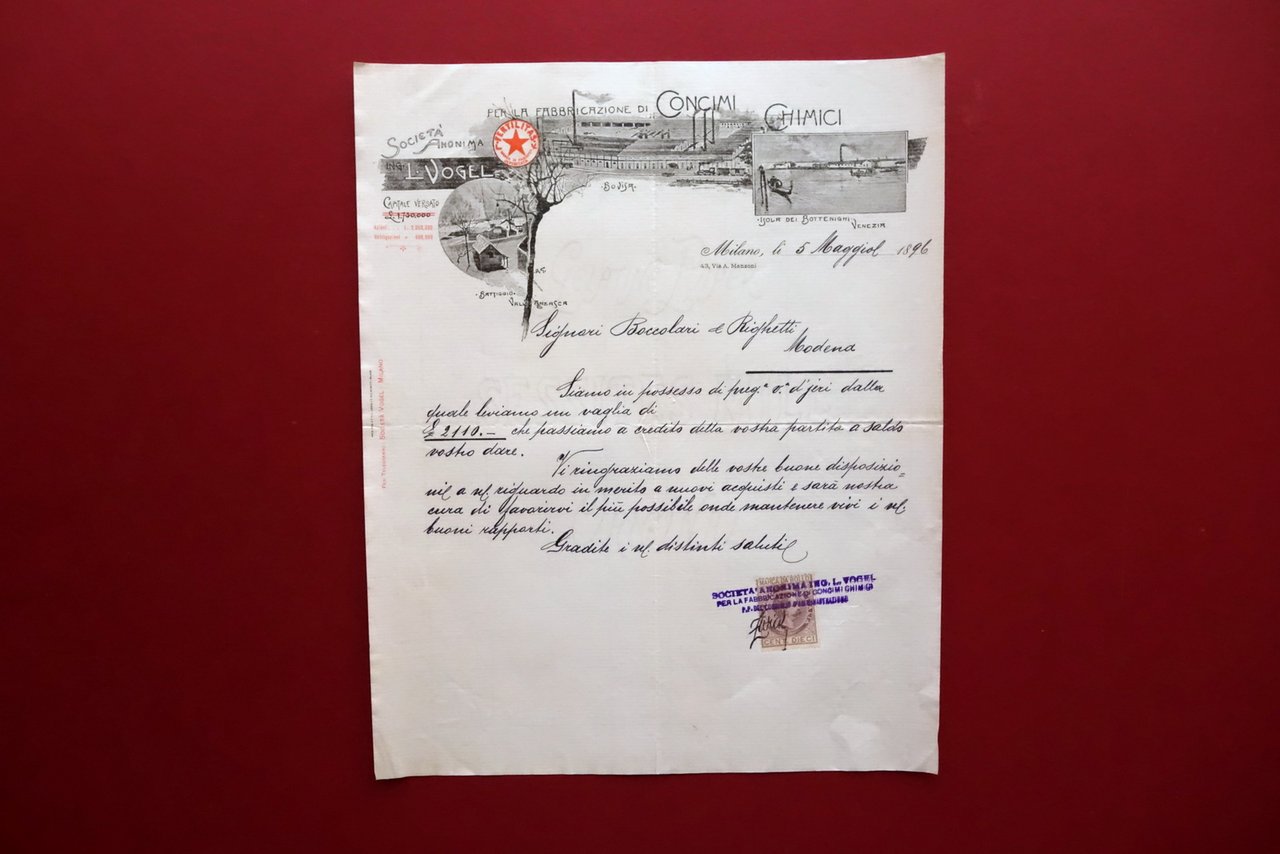 PER LA FABBRICAZIONE DI CONCIMI CHIMICI
SOCIETÀ
ANONIMA
ING. L. VOGEL
FERTILITAS
CAPITALE VERSATO
£ 1,750,000
Azioni L. 2,000,000
Obbligazioni
BOVISA
ISOLA DEI BOTTENIGHI
VENEZIA
BATTIGGIO
VALLE ANZASCA
Milano, li 5 Maggio 1896
43, Via A. Manzoni
Signori Boccolari e Righetti
Modena
Siamo in possesso di preg.a v.a d'jeri dalla
quale leviamo un vaglia di
£ 2110.- che passiamo a credito della vostra partita a saldo
vostro dare.
Vi ringraziamo delle vostre buone disposizio=
ni a ns. riguardo in merito a nuovi acquisti e sarà nostra
cura di favorirvi il più possibile onde mantenere vivi i ns.
buoni rapporti.
Gradite i ns. distinti saluti
Per Telegrammi SOCIETÀ VOGEL - MILANO
SOCIETÀ ANONIMA ING. L. VOGEL
PER LA FABBRICAZIONE DI CONCIMI CHIMICI
CENT. DIECI